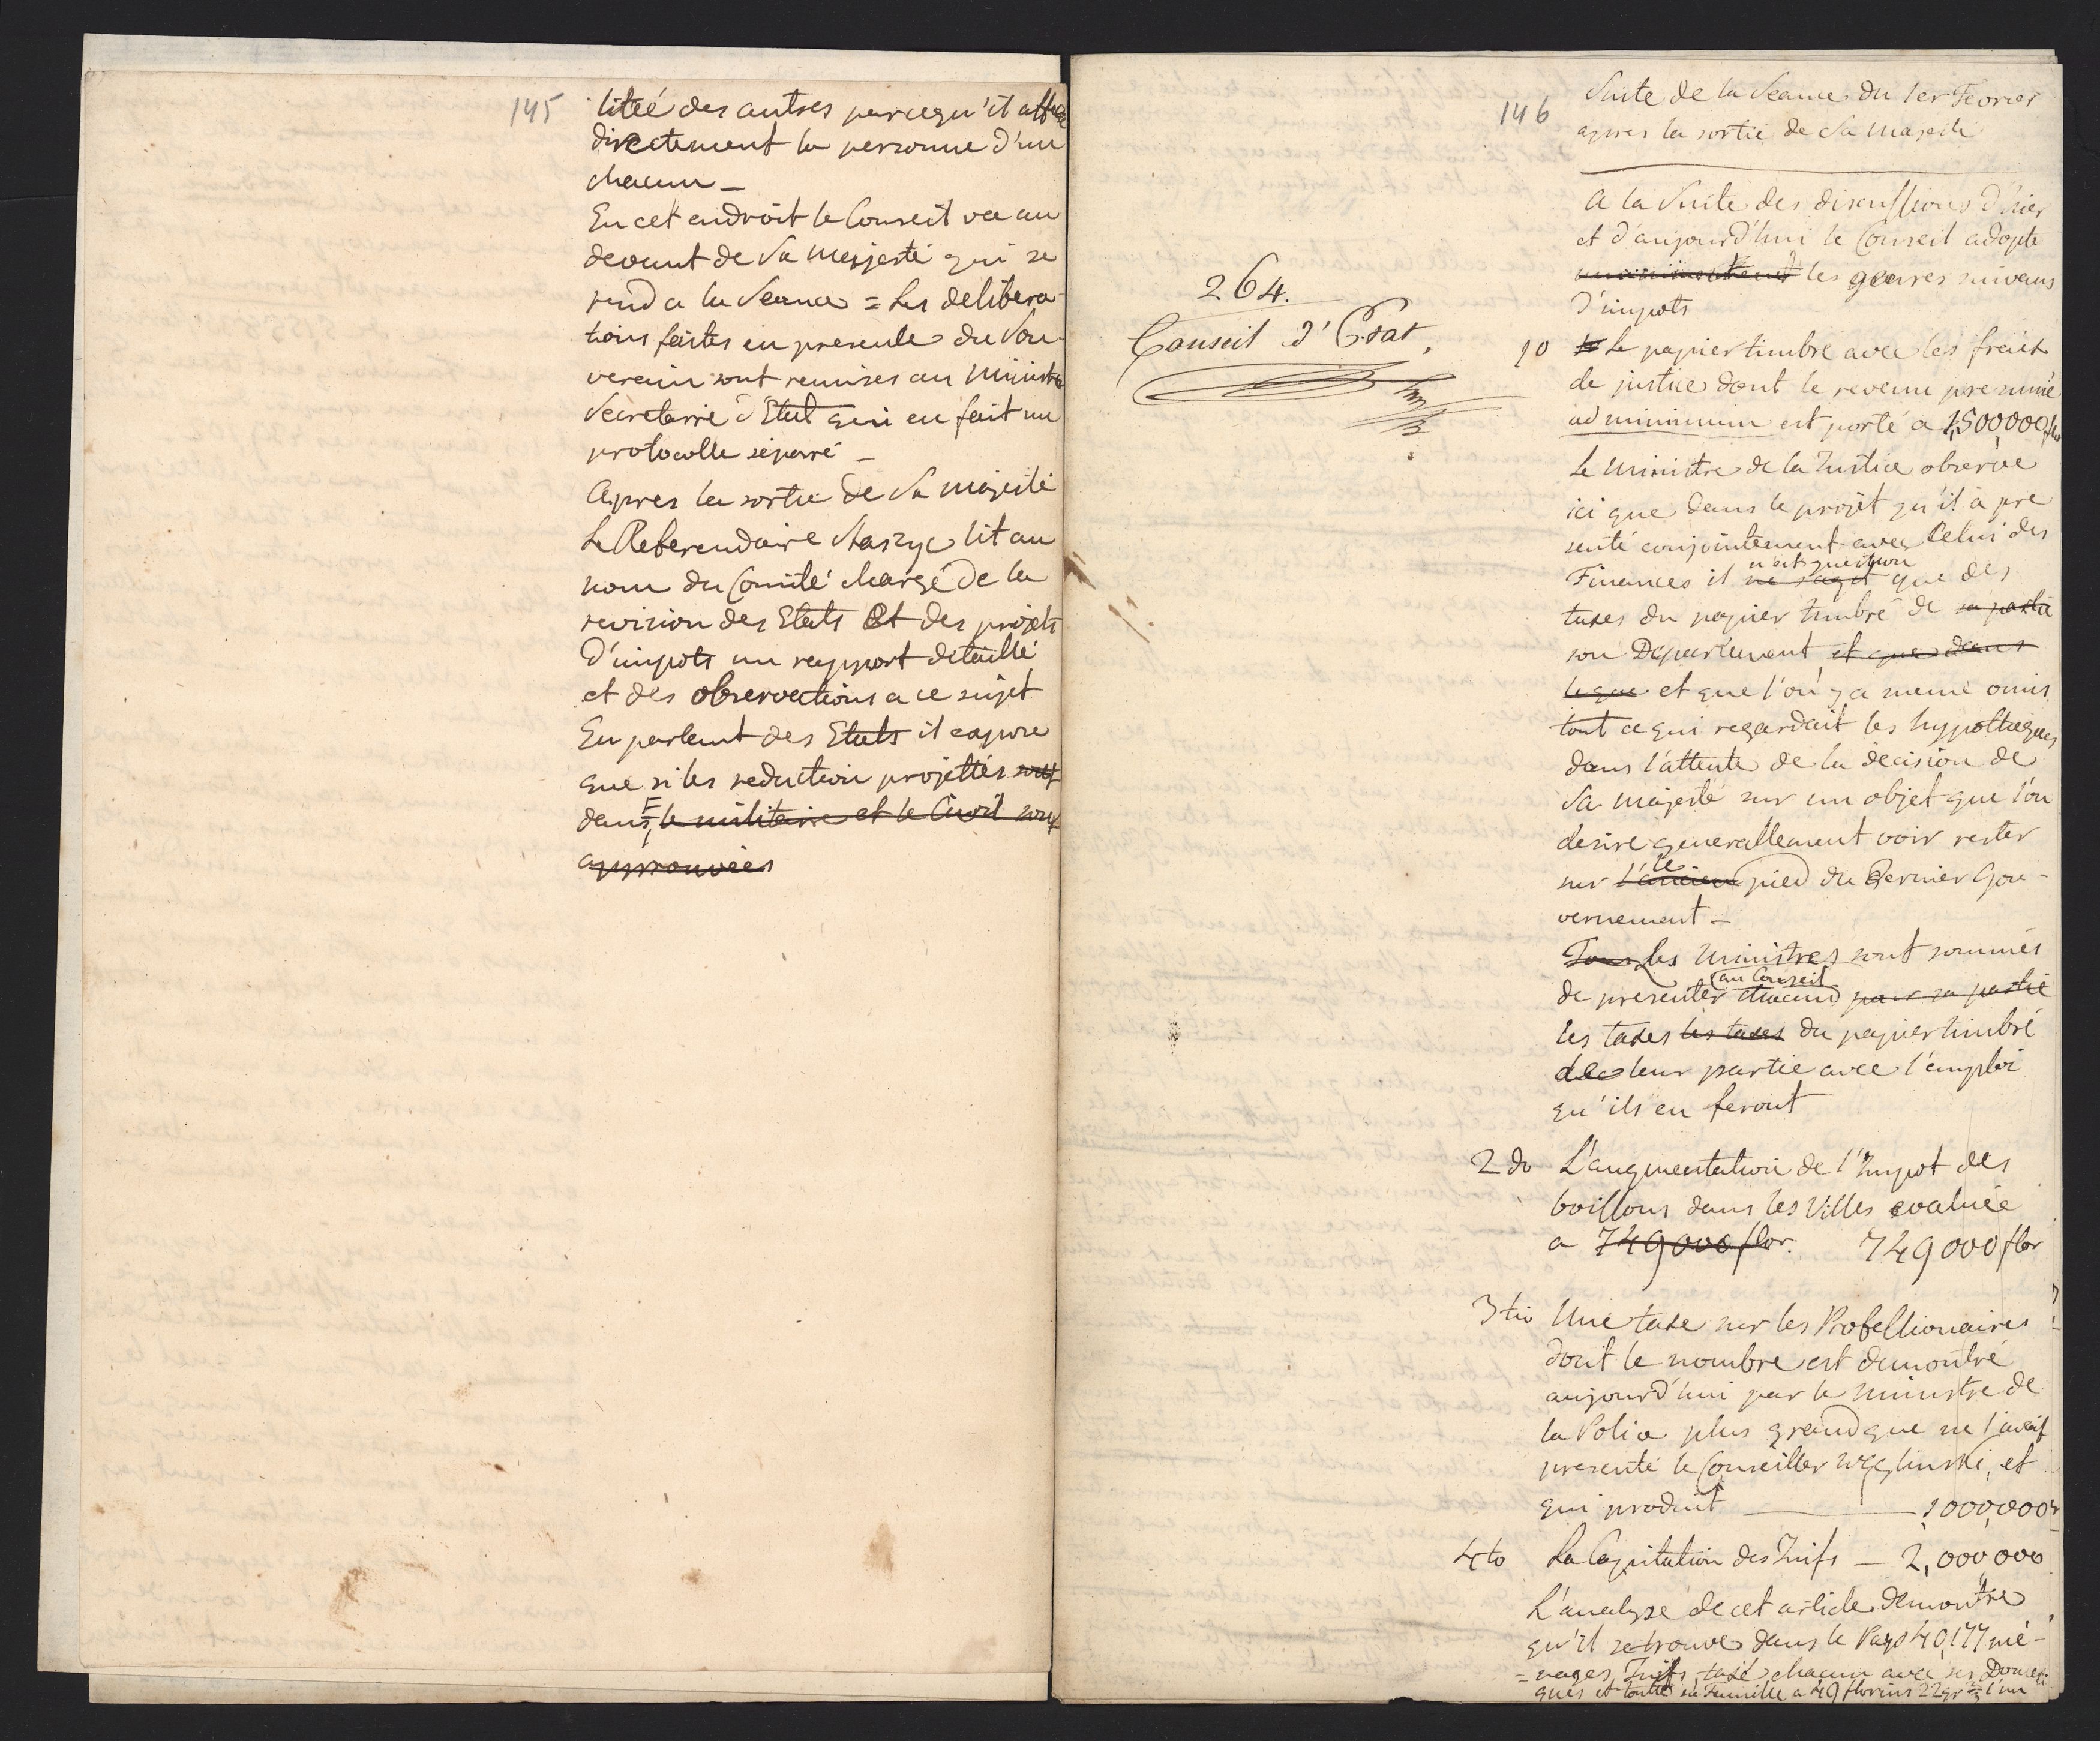 145
litée des autres parcequ'il affecte
directement la personne d'un
chacun –
En cet endroit le Conseil va au
devant de Sa Majesté qui se
rend a la Séance = Les delibera-
tions faites en presence du Sou-
verain sont remises au Ministre
Secretaire d'Etat qui en fait un
protocolle séparé –
Apres la sortie de Sa Majesté
Le Referendaire Staszyc lit au
nom du Comité chargé de la
revision des Etats et des projets
d'impots un rapport detaillé
et des observations a ce sujet
En parlant des Etats il expose
que si les reduction projettés sont
dans le militaire et le Civil sont
approuvées
146
Suite de la Seance du 1er Fevrier
apres la sortie de Sa Majesté
A la Suite des discussions d'hier
et d'aujourd'hui le Conseil adopte
unanimement les genres suivans
d'impots
264.
Conseil d'Etat.
1o Le papier timbré avec les frais
de justice dont le revenu presumé
ad minimum est porté a 1,500,000 flo
Le Ministre de la Justice observe
ici que dans le projet qu'il a pre
senté conjointement avec Celui des
n'est question
Finances il ne s'agit que des
taxes du papier timbré de sa partie
son Departement et que dans
le que et que l'on y a meme omis
tout ce qui regardait les hypotheques
dans l'attente de la decision de
Sa Majesté sur un objet que l'on
desire generallement voir rester
le
sur l'ancien pied du Dernier Gou-
vernement –
Tous Les Ministres sont sommés
au Conseil
de presenter chacun pour sa partie
les taxes les taxes du papier timbré
de leur partie avec l'emploi
qu'ils en feront
2do L'augmentation de l'Impot des
boissons dans les Villes evaluée
a 749000 flor. 749000 flor
3tio Une taxe sur les Professionaires
dont le nombre est demontré
aujourd'hui par le Ministre de
la Police plus grand que ne l'avait
presenté le Conseiller Węgliński, et
qui produit — 1000,000
4to La Capitation des Juifs – 2,000,000
L'analyse de cet article demontre
qu'il se trouve dans le Pays 40,177 mé-
=nages Juifs taxé chacun avec ses Domesti
ques et toute sa Famille a 49 florins 22 gr l'un